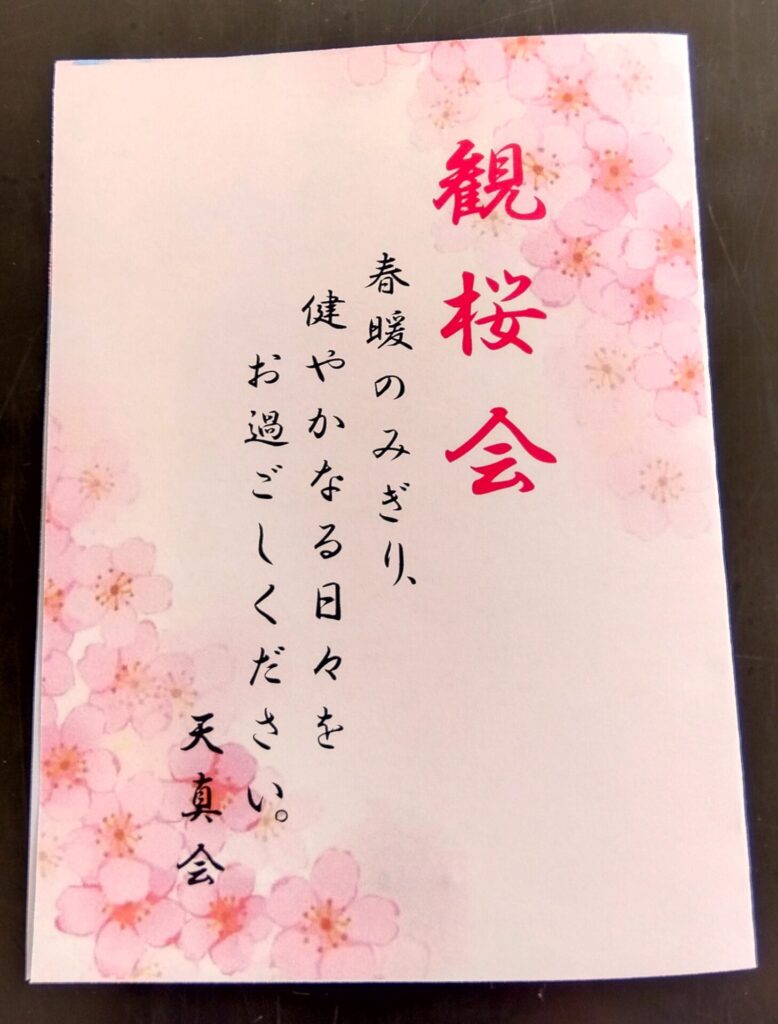 観桜会
春暖のみぎり、
健やかなる日々を
お過ごしください。
天真会